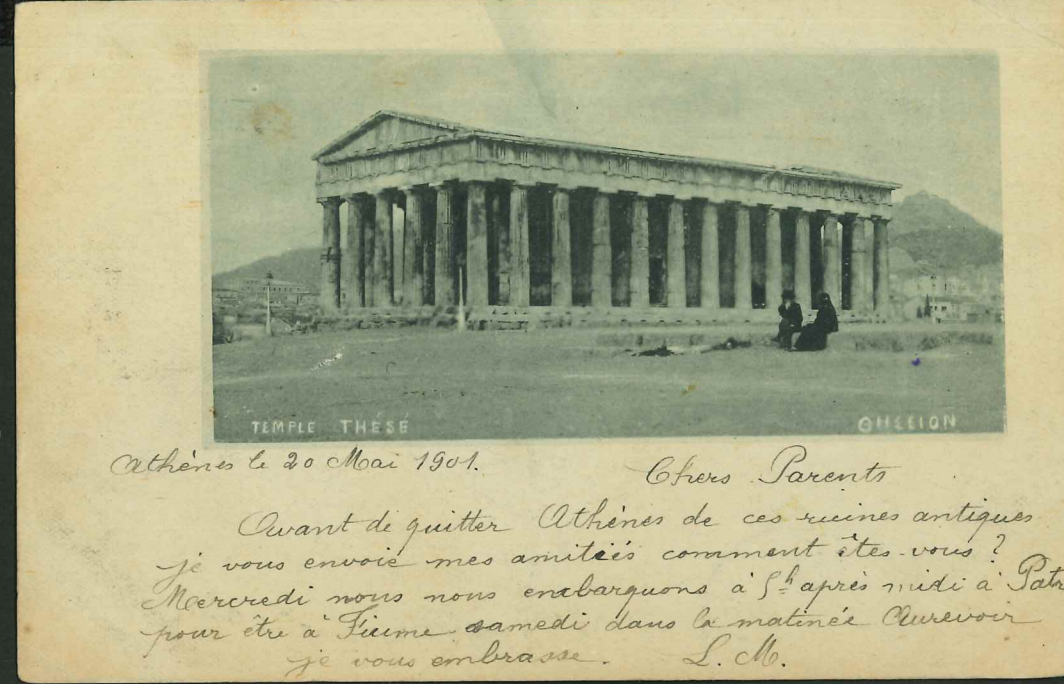 TEMPLE THÉSÉ
ΘΗΣΕΙΟΝ
Athénes le 20 Mai 1901.
Chers Parents
Avant de quitter Athénes de ces ruines antiques
je vous envoie mes amitiés comment êtes-vous ?
Mercredi nous nous embarquons à 5h après midi à
pour être à Fiume samedi dans la matinée Aurevoir
je vous embrasse. L. M.